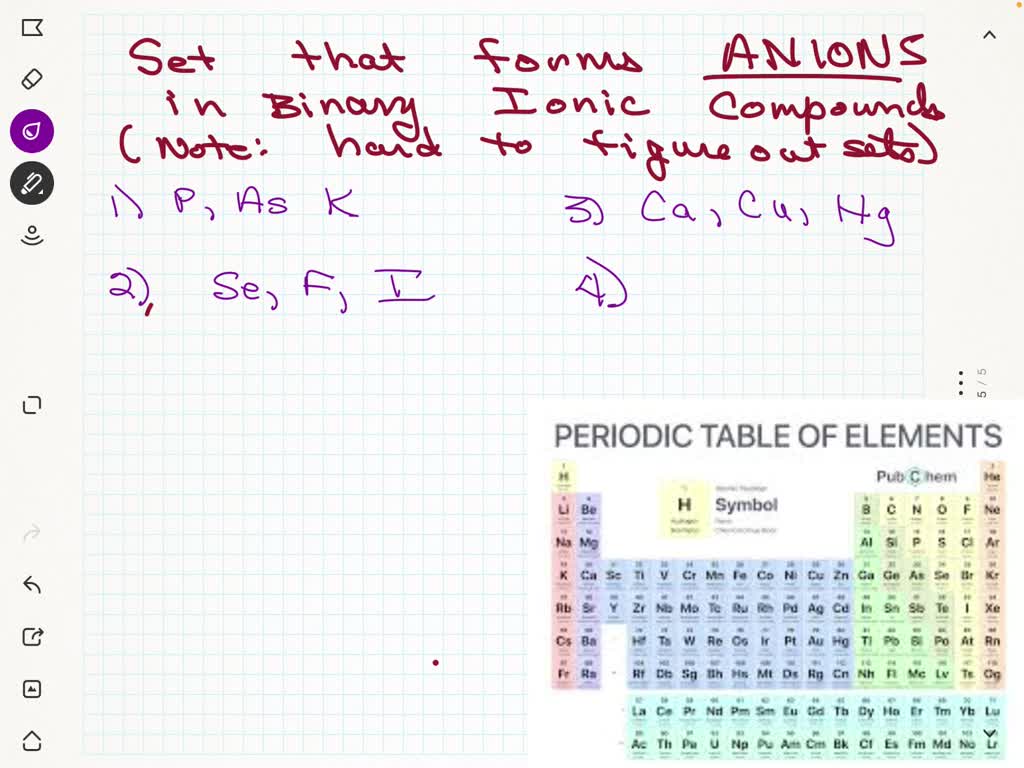 Set that forms ANIONS
in Binary Ionic Compounds
(Note: hard to figure out sets)
1) P, As K
3) Ca, Cu, Hg
2), Se, F, I
4)
5 / 5
PERIODIC TABLE OF ELEMENTS
PubChem
H He
H Symbol
Li Be B C N O F Ne
Na Mg Al Si P S Cl Ar
K Ca Sc Ti V Cr Mn Fe Co Ni Cu Zn Ga Ge As Se Br Kr
Rb Sr Y Zr Nb Mo Tc Ru Rh Pd Ag Cd In Sn Sb Te I Xe
Cs Ba Hf Ta W Re Os Ir Pt Au Hg Tl Pb Bi Po At Rn
Fr Ra Rf Db Sg Bh Hs Mt Ds Rg Cn Nh Fl Mc Lv Ts Og
La Ce Pr Nd Pm Sm Eu Gd Tb Dy Ho Er Tm Yb Lu
Ac Th Pa U Np Pu Am Cm Bk Cf Es Fm Md No Lr